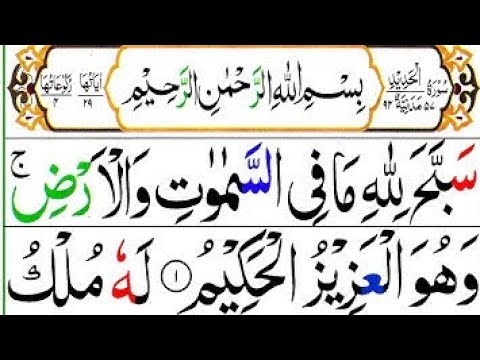 سُوْرَةُ الْحَدِيْدِ مَدَنِيَّةٌ ٥٧ ٩٤
بِسْمِ اللهِ الرَّحْمٰنِ الرَّحِيْمِ
اٰيَاتُهَا ٢٩ رُكُوْعَاتُهَا ٤
سَبَّحَ لِلّٰهِ مَا فِى السَّمٰوٰتِ وَالْاَرْضِ ۚ
وَهُوَ الْعَزِيْزُ الْحَكِيْمُ ١ لَهٗ مُلْكُ